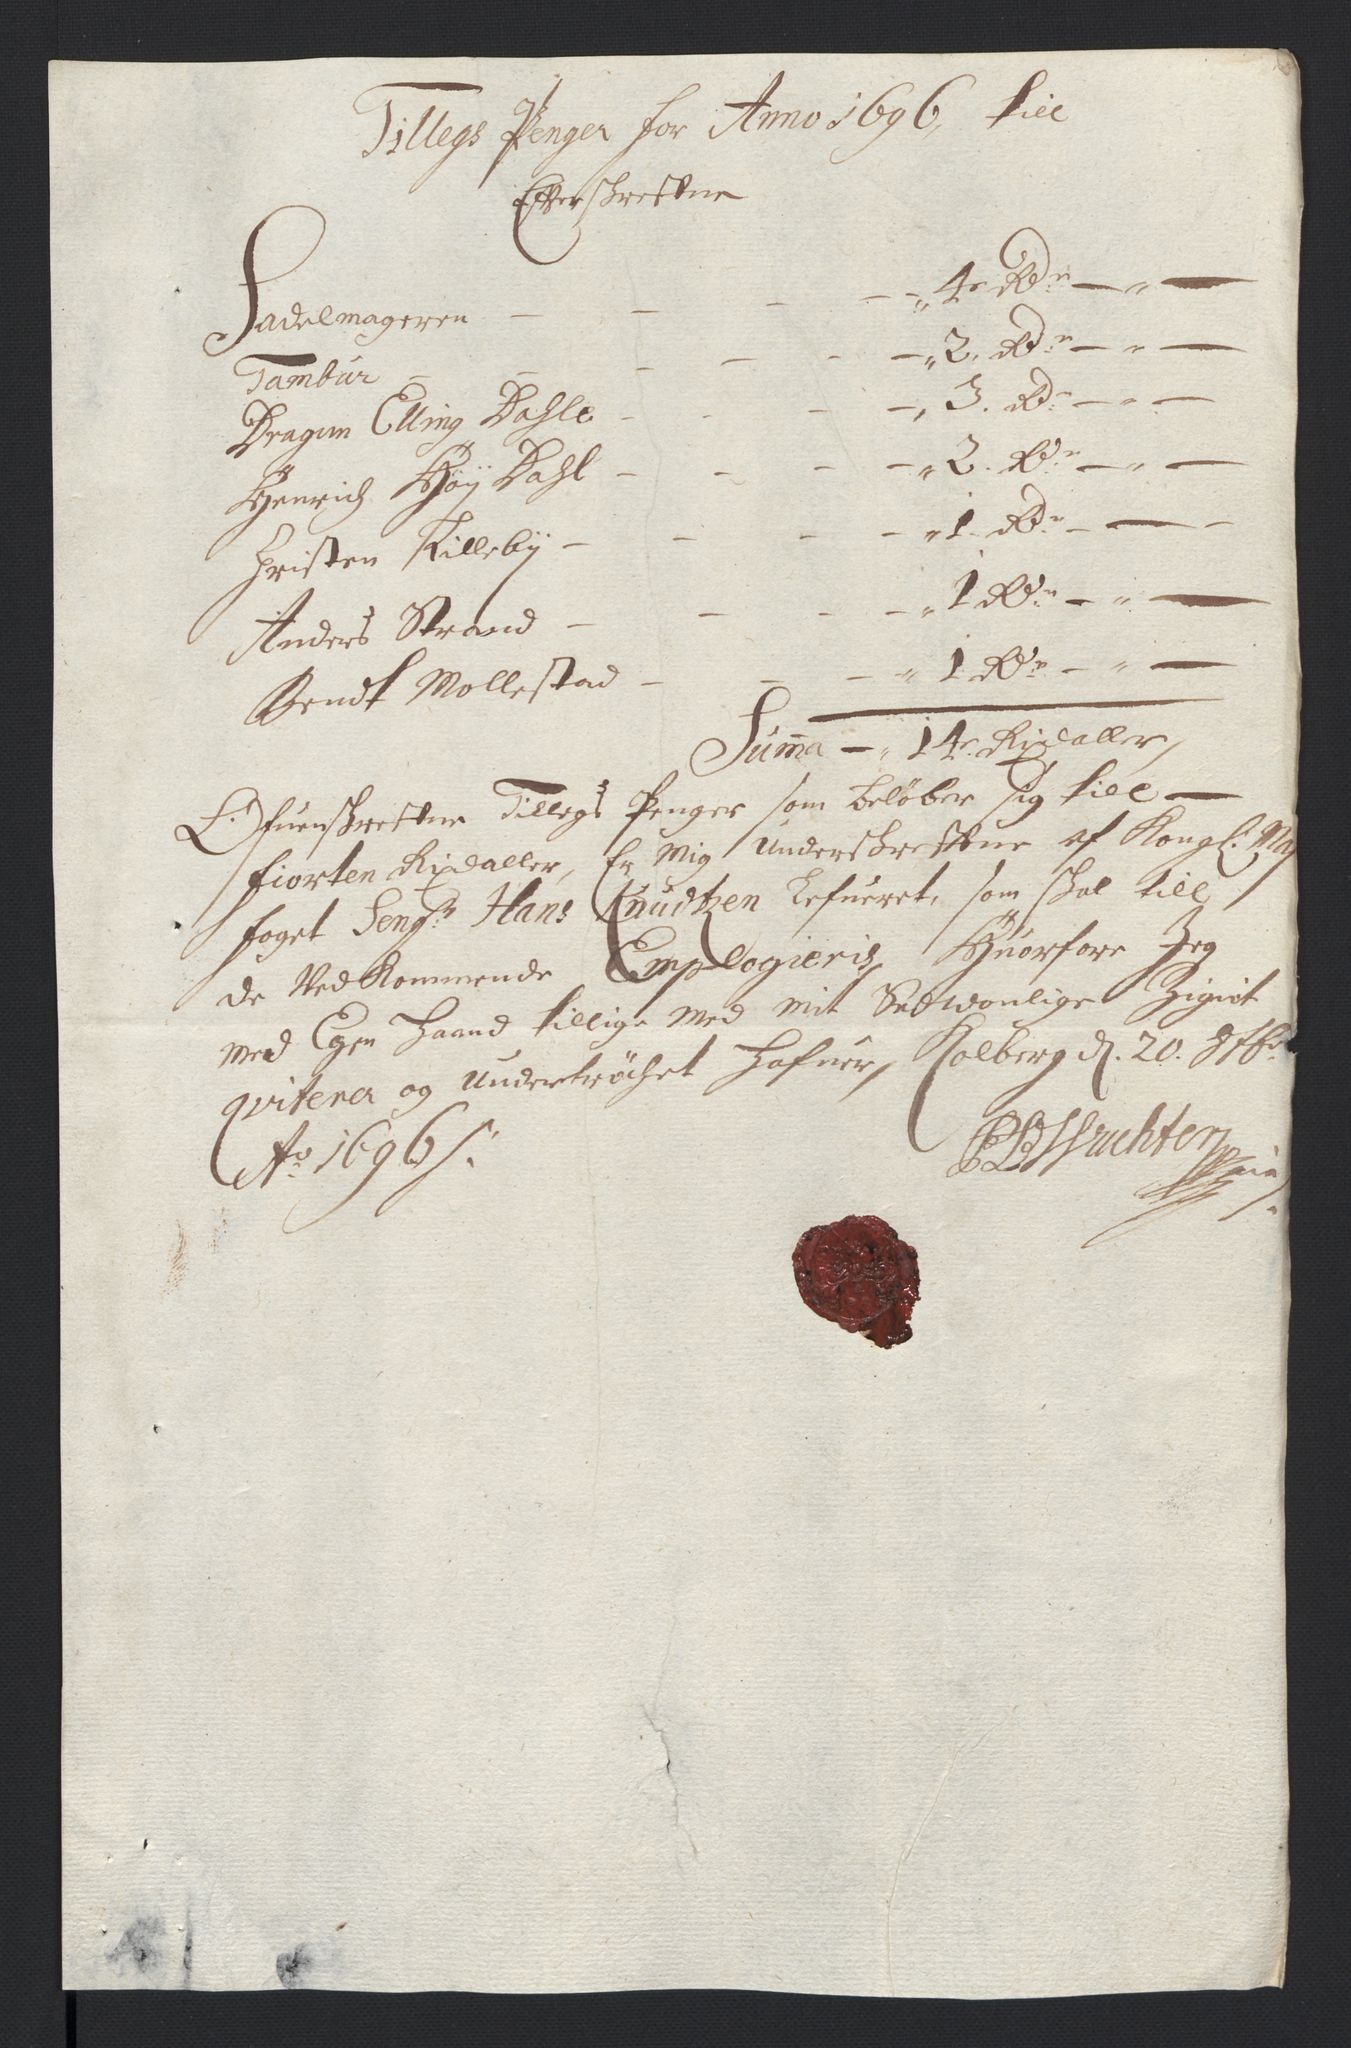 Tillegs Penger for Anno 1696, till
Effterschreffne
Sadelmageren — — — „ 4 Rdr — „ —
Tambur — — — — „ 2. Rdr — „ —
Dragun Elling Dahle — — — „ 3. Rdr — „ —
Henrich Høÿ Dahl — — — „ 2. Rdr — „ —
Christen Killebÿ — — — „ 1. Rdr — —
Anders Strand — — — „ 1 Rdr — „ —
Bendt Mollestad — — — „ 1 Rdr — „ —
Summa — „ 14 Rixdaller,
Ofuenschreffne Tillegs Penger som beløber sig till —
fiorten Rixdaller, Er Mig Underschreffne af Kongl: May
foget Sengr Hans Knudtzen Lefueret, som skal till
de Ved Kommende Emplogieris, Huorfore Jeg
med Egen Haand tillige med mit Sedwonlige Zignet
qviterer og undertröchet hafuer, Kolberg d. 20. 8tbr
Ao 1696 /: